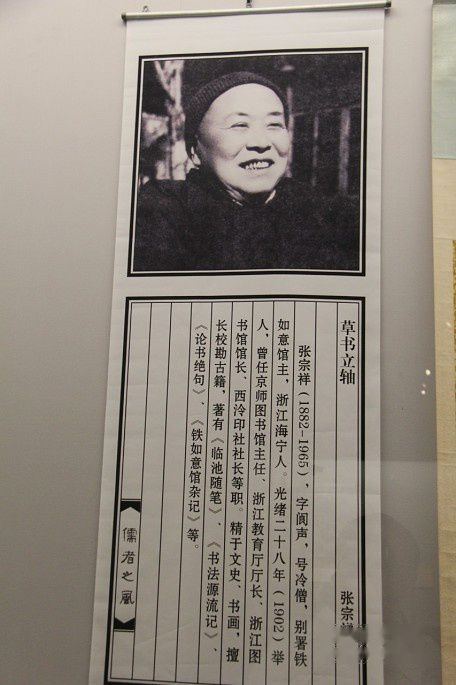 草书立轴
张宗
张宗祥（1882-1965），字阆声，号冷僧，别署铁
如意馆主，浙江海宁人。光绪二十八年（1902）举
人，曾任京师图书馆主任、浙江教育厅厅长、浙江图
书馆馆长、西泠印社社长等职。精于文史、书画，擅
长校勘古籍，著有《临池随笔》、《书法源流记》、
《论书绝句》、《铁如意馆杂记》等。
儒者之风